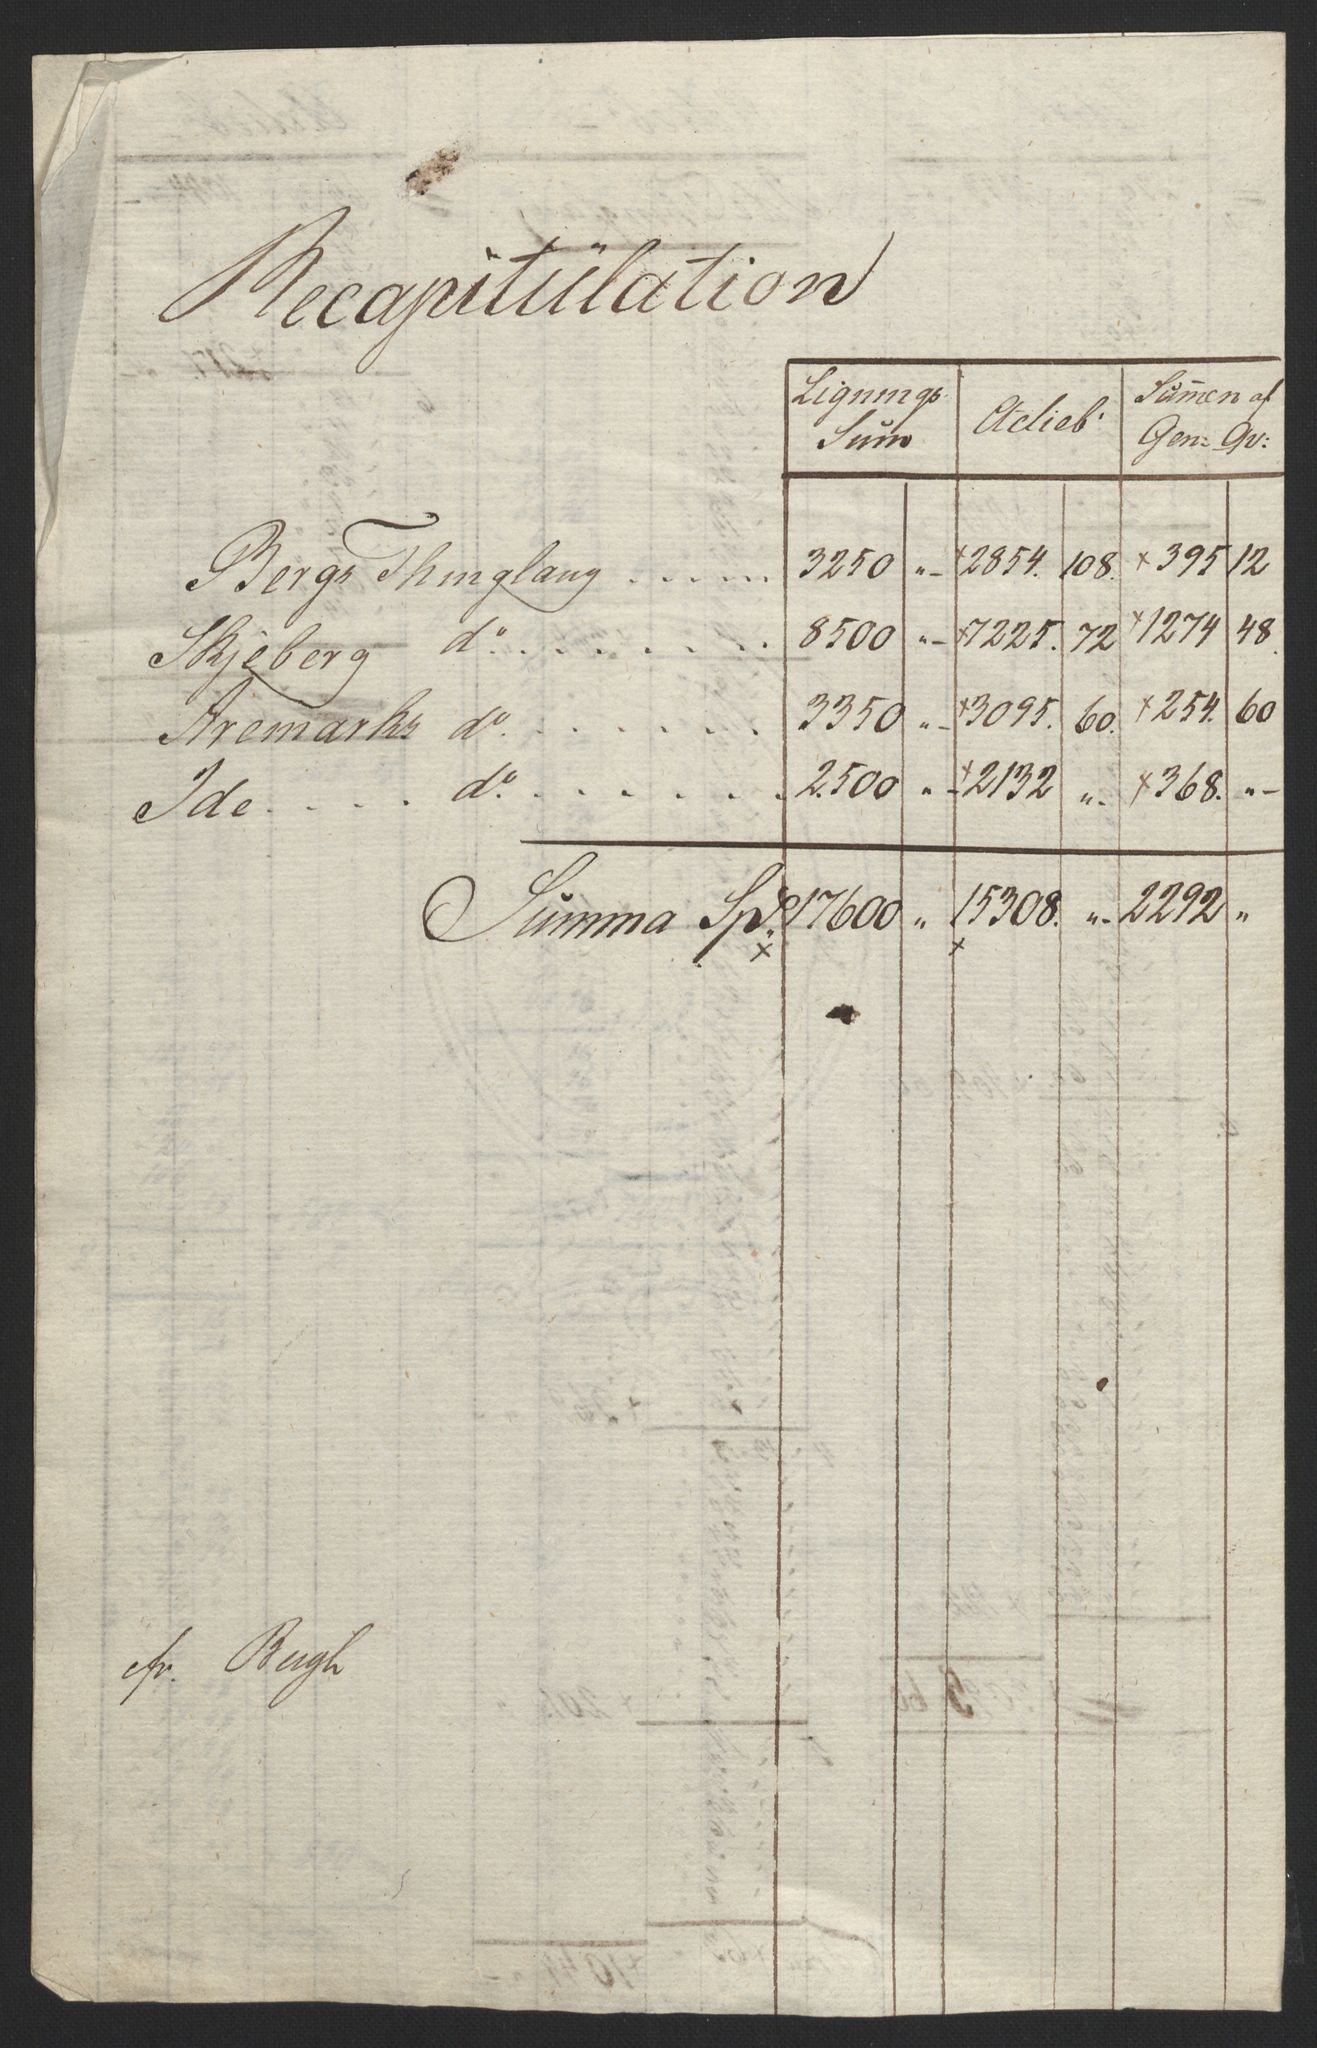 Recapitulation
Lignings Sum | Activ | Summen af Gen: Qv:
Bergs Thinglaug ...... 3250 " - +2854. 108. +395 12
Skjeberg do. ........ 8500 " - +7225. 72 +1274 48.
Aremarks do. ....... 3350 " - +3095. 60. +254. 60
Ide .... do. ........ 2500 " - +2132 " - +368. " -
Summa Spd. 17600 " 15308. " - 2292 "
x x
cfr. Bugh